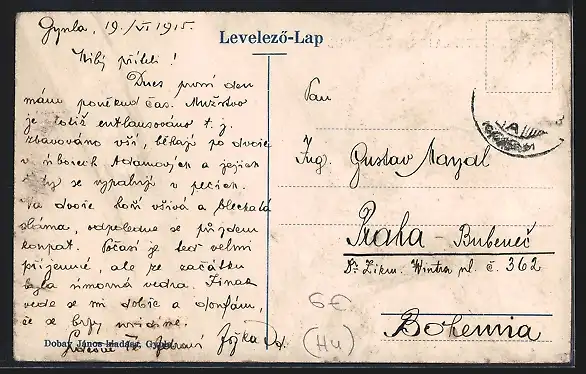 Gyula, 19./VI 1915.
Levelező-Lap
Milý příteli!
Dnes první den
máme poněkud čas. Mužstvo
je totiž entlausováno t. j.
zbavováno vší, běhají po dvoře
v rouších Adamových a jejich
se vypalují v pecích.
Na dvoře hoří všivá a blechatá
sláma, odpoledne se půjdem
koupat. Počasí je teď velmi
příjemné, ale ze začátku
byla úmorná vedra. Jinak
vede se mi dobře a doufám,
že se brzy uvidíme.
Srdečně Tě zdraví
Dobay János kiadása, Gyula
Pan
Ing. Gustav
Praha - Bubeneč
Dr. Zikm. Wintra ul. č. 362
Bohemia
6€
(Hu)